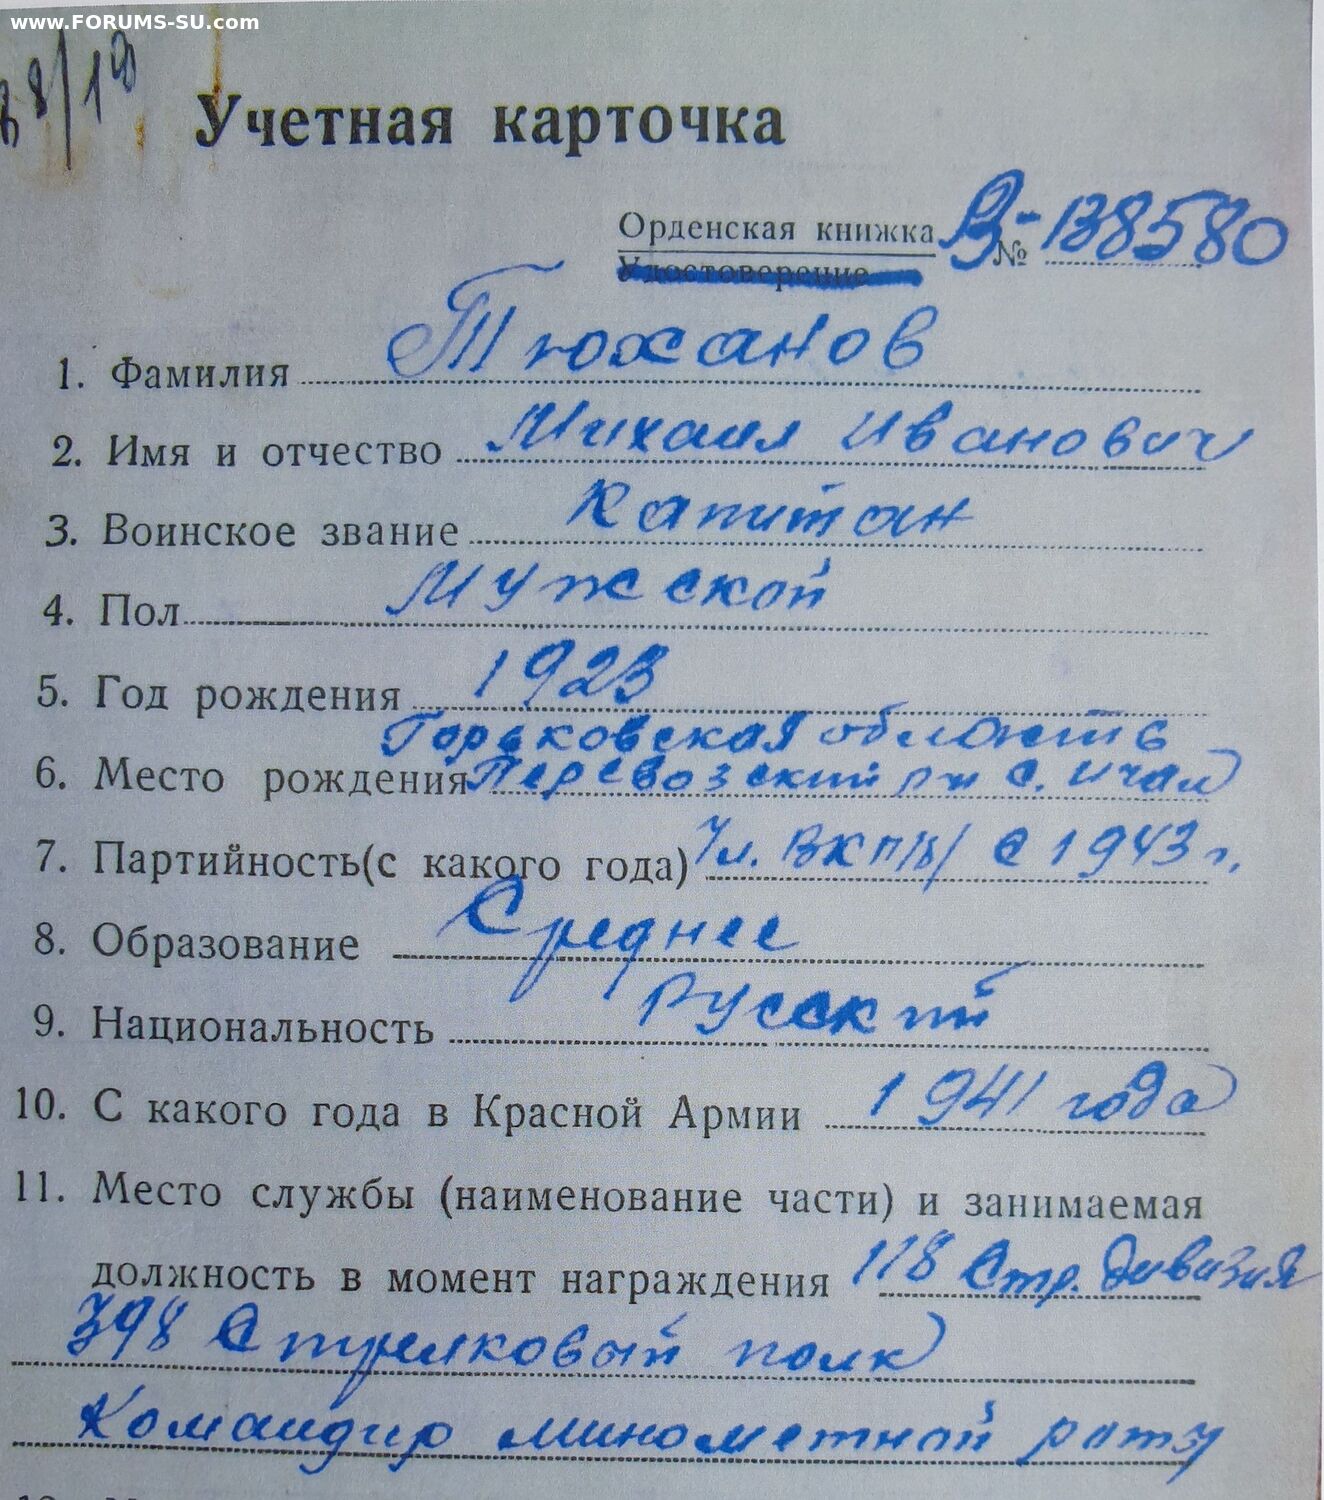 www.FORUMS-SU.com
Учетная карточка
Орденская книжка В- № 138580
Удостоверение
1. Фамилия Тюханов
2. Имя и отчество Михаил Иванович
3. Воинское звание Капитан
4. Пол Мужской
5. Год рождения 1923
Горьковская область
6. Место рождения Перевозский р-н с. Ичал
7. Партийность(с какого года) Чл. ВКП/б/ с 1943 г.
8. Образование Среднее
9. Национальность Русский
10. С какого года в Красной Армии 1941 года
11. Место службы (наименование части) и занимаемая
должность в момент награждения 118 Стр. дивизия
398 Стрелковый полк
Командир минометной роты